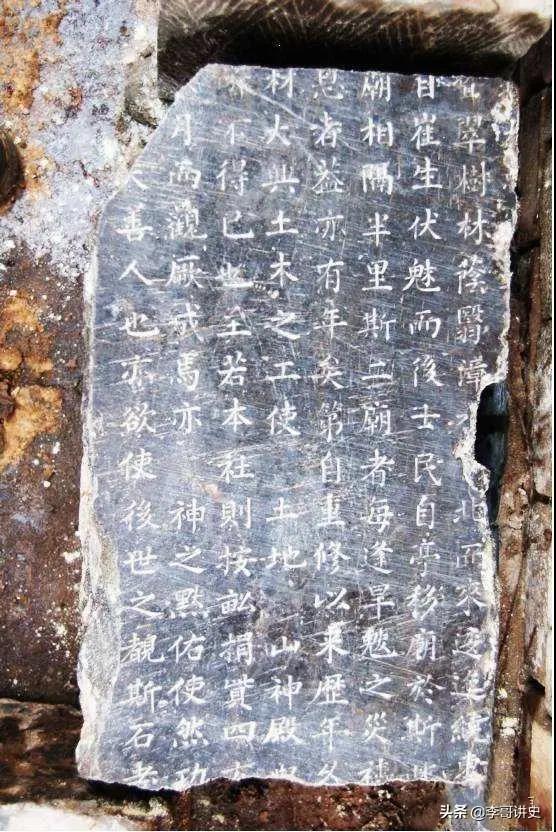 翠樹林蔭翳漳北而來逶迤繞東
日崔生伏魅而後士民自亭移廟於斯
廟相隔半里斯二廟者每逢旱魃之災禱
者益亦有年矣第自重修以来歷年久
材大興土木之工使 土地 山神殿
不得已也至若本社則按畝捐貲四方
月而觀厥成焉亦 神之默佑使然功
善人也亦欲使後世之覩斯石者
头条 @李哥讲史